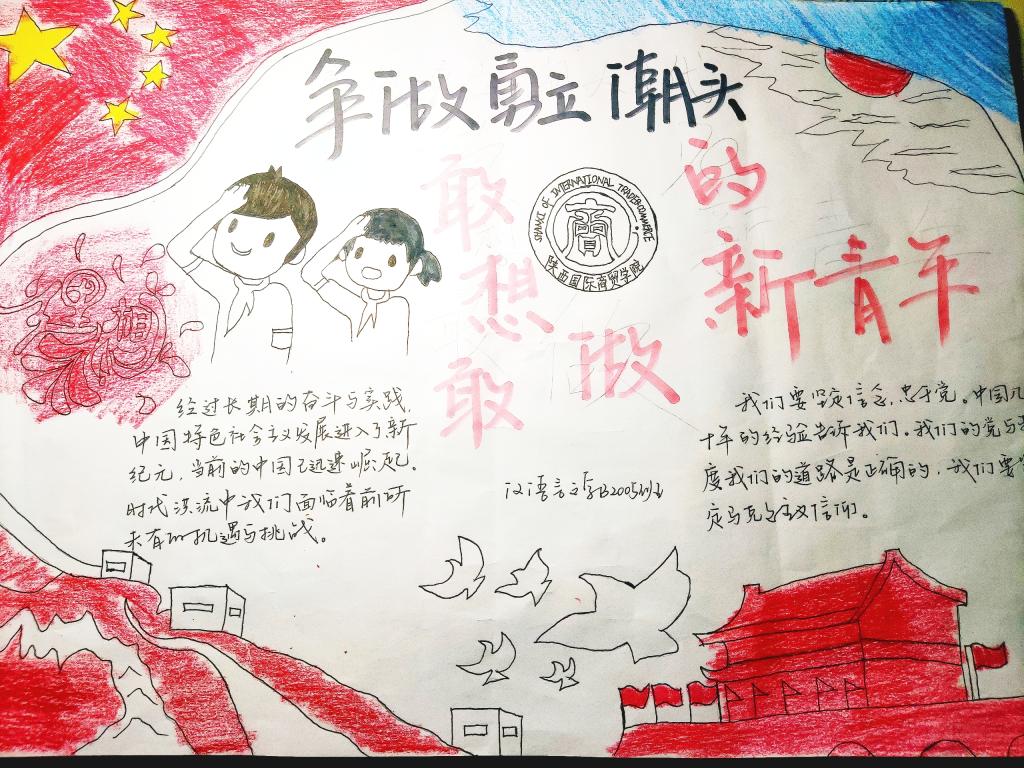 争做勇立潮头
敢想敢做
的
新青年
SHAANXI OF INTERNATIONAL TRADE&COMMERCE
陕西国际商贸学院
经过长期的奋斗与实践,
中国特色社会主义发展进入了新
纪元,当前的中国已迅速崛起。
时代洪流中我们面临着前所
未有的机遇与挑战。
汉语言文学B2005
我们要坚定信念,忠于党。中国几
十年的经验告诉我们,我们的党与
度我们的道路是正确的,我们要
定马克思主义信仰。